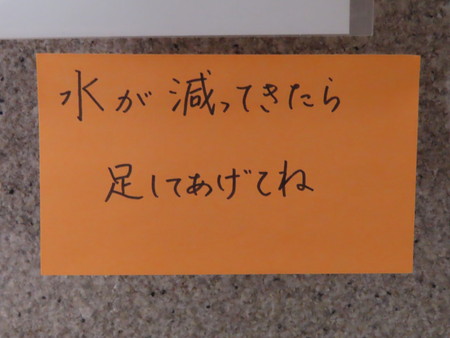 水が減ってきたら
足してあげてね